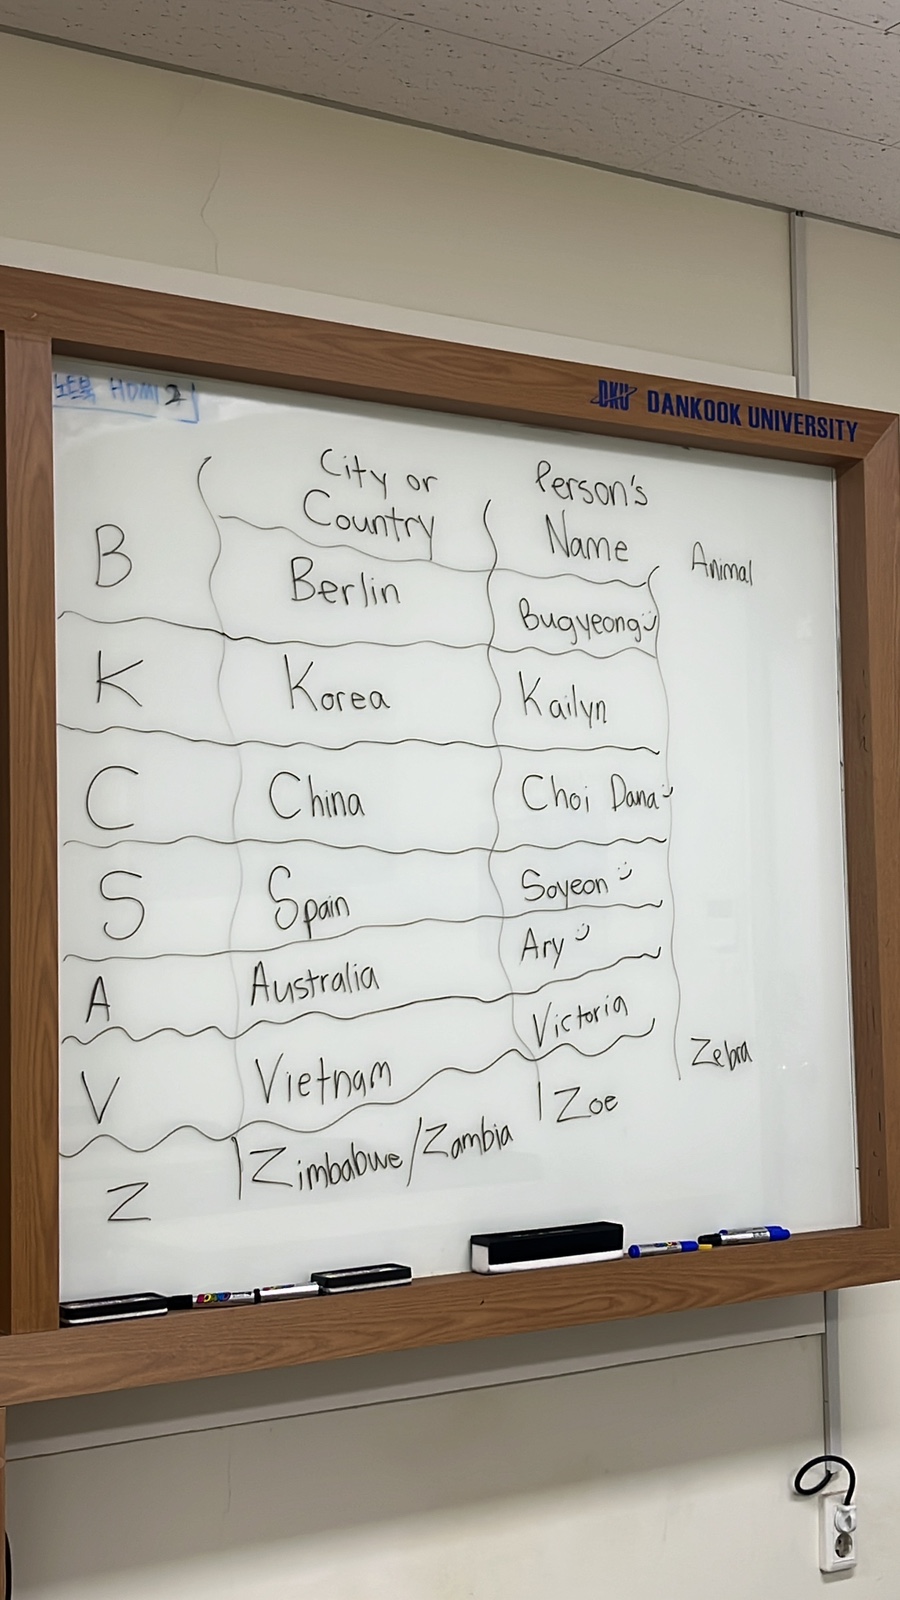 노트북 HDMI 2
DKU DANKOOK UNIVERSITY
City or
Country
Person's
Name
Animal
B Berlin Bugyeong
K Korea Kailyn
C China Choi Dana
S Spain Soyeon
A Australia Ary
V Vietnam Victoria
Z Zimbabwe/Zambia Zoe Zebra